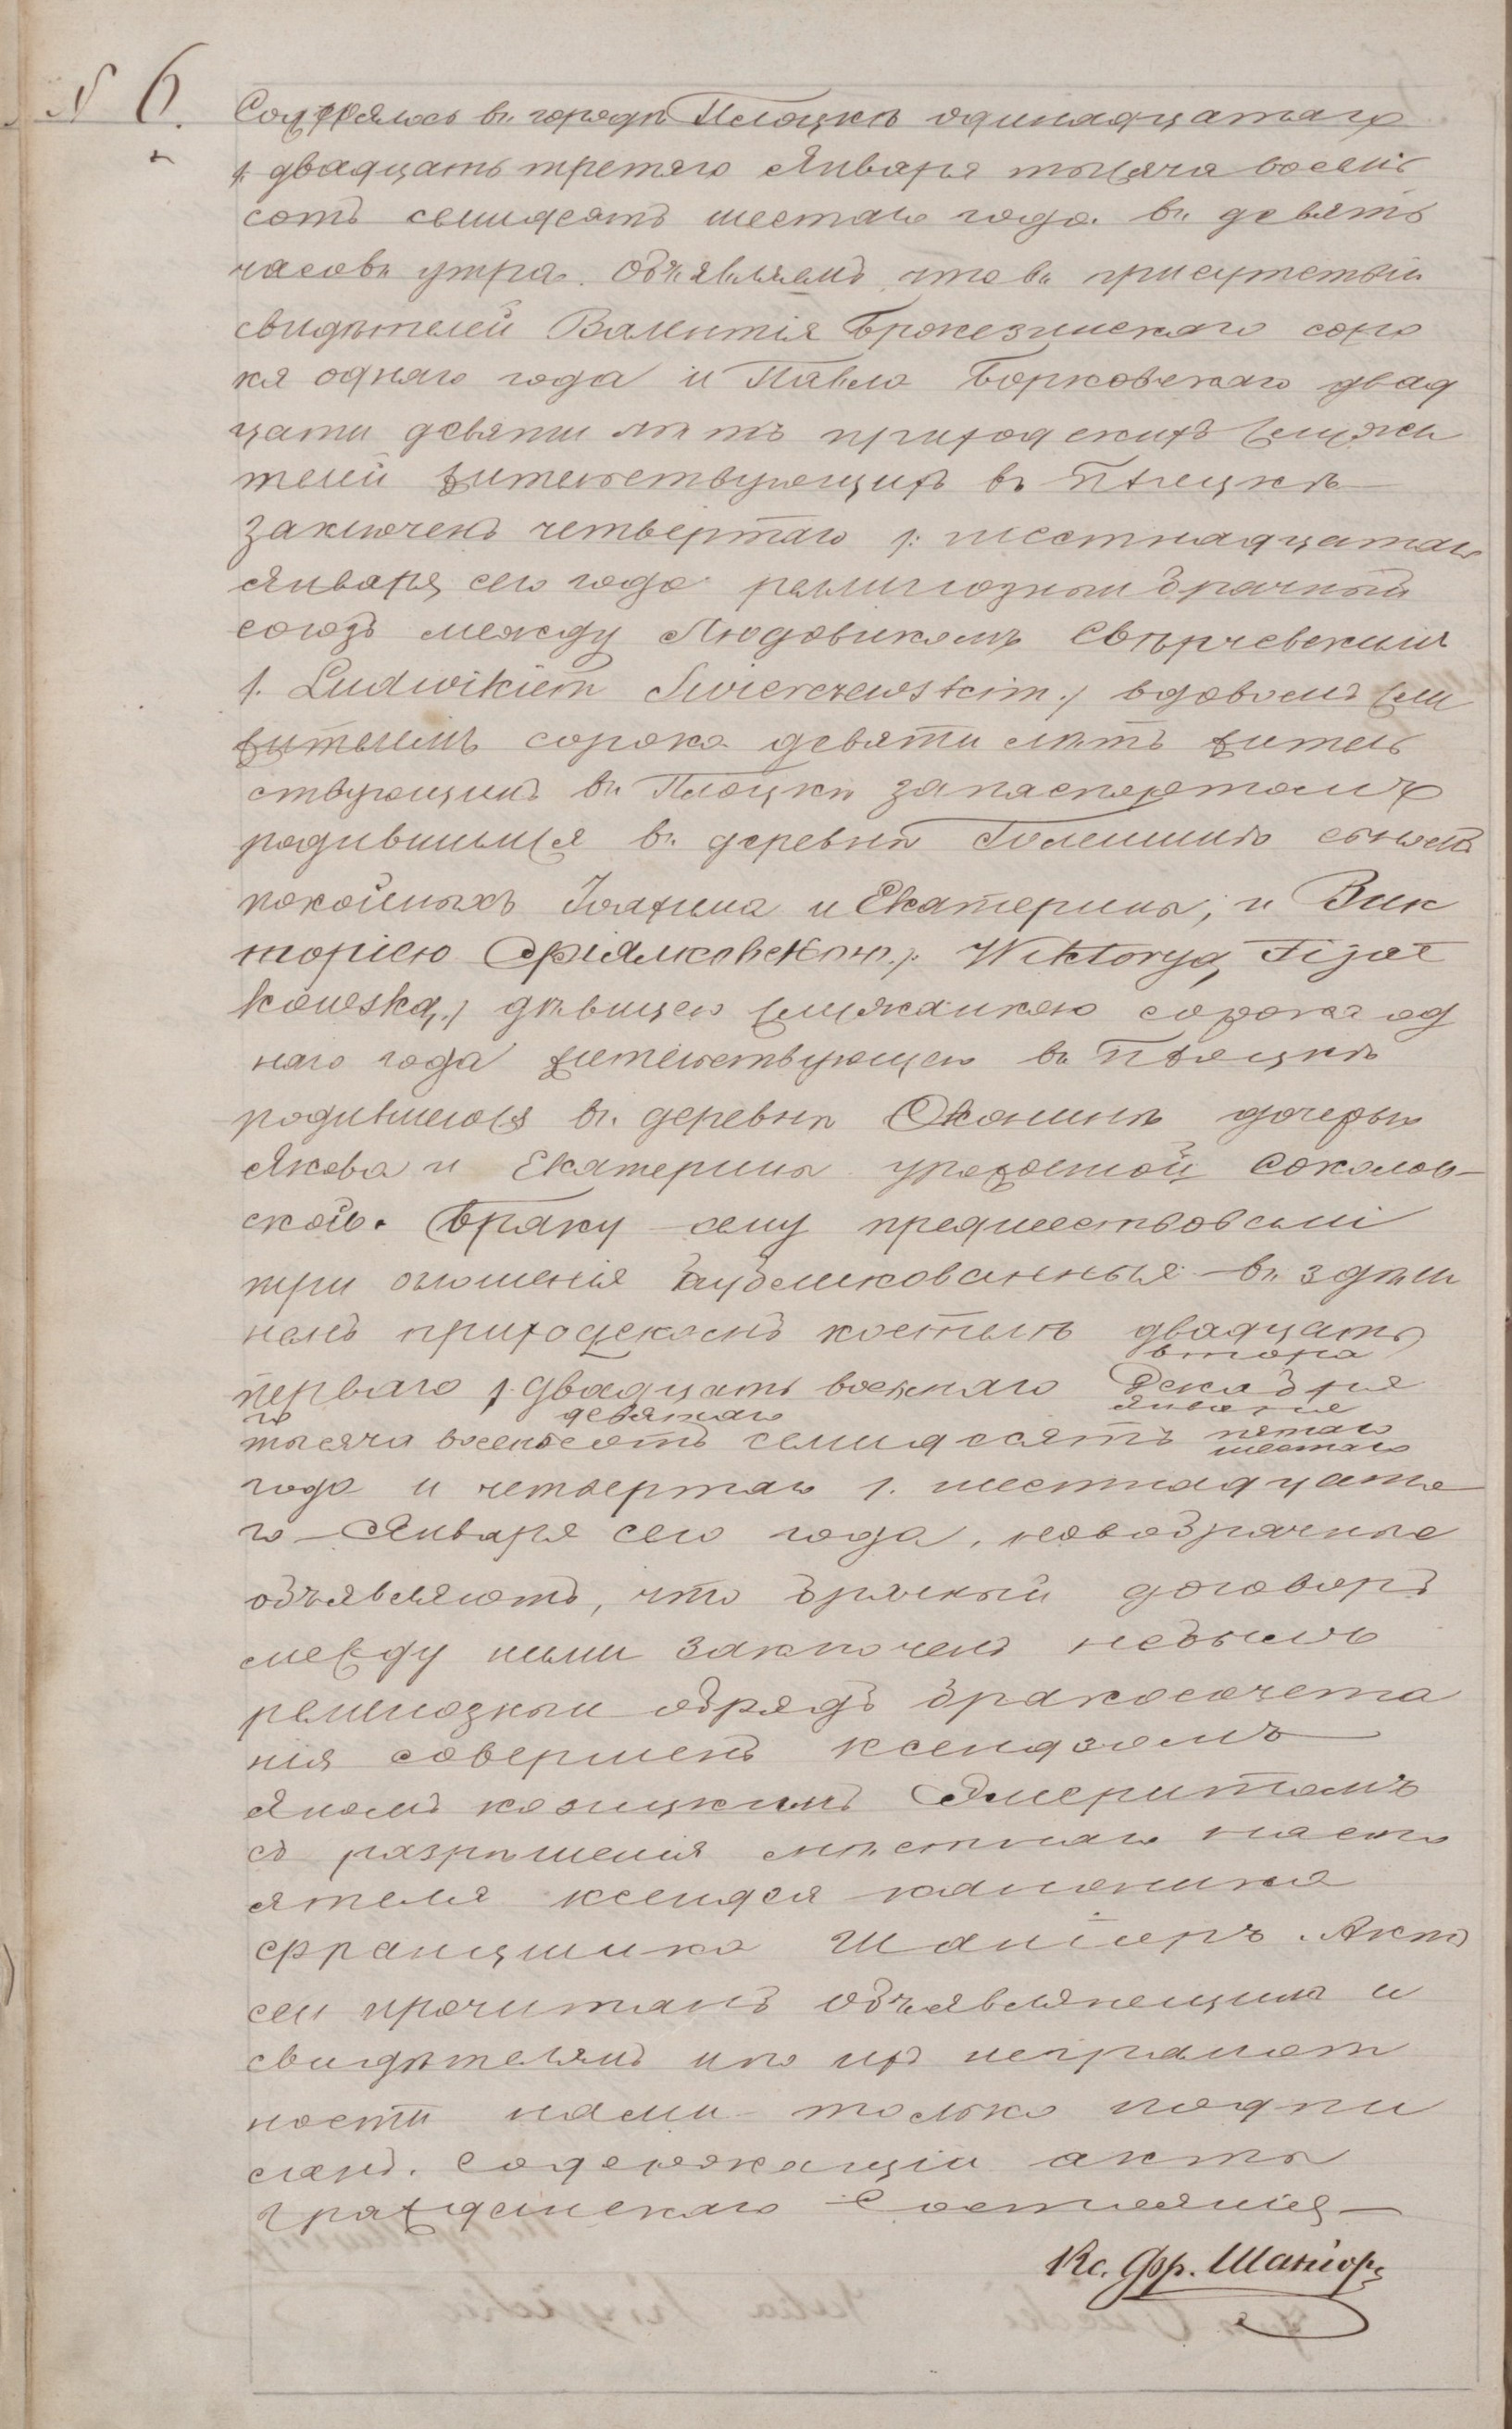 N 6.
Состоялось въ городѣ Плоцкѣ одинадцатаго
/: двадцать третяго Января тысяча восемь
сотъ семидесятъ шестаго года въ девять
часовъ утра. Объявляемъ, что въ присутствіи
свидѣтелей Валентія Бржезинскаго соро
ка одного года и Павла Борковскаго двад
цати девяти лѣтъ приходскихъ служи
телей жительствующихъ въ Плоцкѣ
заключенъ четвертаго /: шестнадцатаго
Января сего года религіозный брачный
союзъ между Людовикомъ Свѣрчевскимъ
/. Ludwikiem Swierczewskim ./ вдовцемъ слу
жителемъ сорока девяти лѣтъ житель
ствующимъ въ Плоцкѣ за паспортомъ
родившимся въ деревнѣ сыномъ
покойныхъ Іоахима и Екатерины, и Вик
торіею Фіялковскою /: Wiktoryą Fijał
kowską ./ дѣвицею служанкою сорока од
наго года жительствующею въ Плоцкѣ
родившеюся въ деревнѣ дочерью
Якова и Екатерины урожденной Соколов-
ской. Браку сему предшествовали
три оглашенія публикованныя въ здѣш
немъ приходскомъ костелѣ двадцать
втора
перваго /: двадцать восьмаго Декабря
го девятаго Января
тысяча восемьсотъ семидесятъ пятаго
шестаго
года и четвертаго /. шестнадцата
го Января сего года, новобрачные
объявляютъ, что брачный договоръ
между ними заключенъ небылъ
религіозный обрядъ бракосочета
нія совершенъ ксендзомъ
Яномъ Эмеритомъ
съ разрѣшенія мѣстнаго насто
ятеля ксендза каноника
Францишка Шаніоръ. Актъ
сей прочитанъ объявляющимъ и
свидѣтелямъ и по ихъ неграмот
ности нами только подпи
санъ. Содержащій акты
гражданскаго Состоянія
Кс. Фр. Шаніоръ